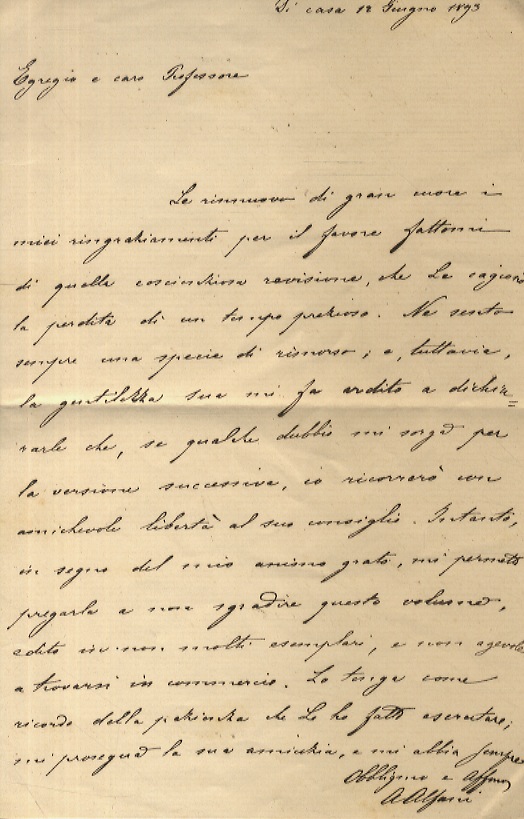 Di casa 12 Giugno 1893
Egregio e caro Professore
Le rinnuovo di gran cuore i
miei ringraziamenti per il favore fattomi
di quella coscienziosa revisione, che Le cagionò
la perdita di un tempo prezioso. Ne sento
sempre una specie di rimorso; e, tuttavia,
la gentilezza sua mi fa ardito a dichia=
rarle che, se qualche dubbio mi sorga per
la versione successiva, io ricorrerò con
amichevole libertà al suo consiglio. Intanto,
in segno del mio animo grato, mi permetto
pregarla a non sgradire questo volume,
edito in non molti esemplari, e non agevole
a trovarsi in commercio. Lo tenga come
ricordo della pazienza che Le ho fatto esercitare;
mi prosegua la sua amicizia, e mi abbia sempre
Obbligmo e Affmo
A Alfani